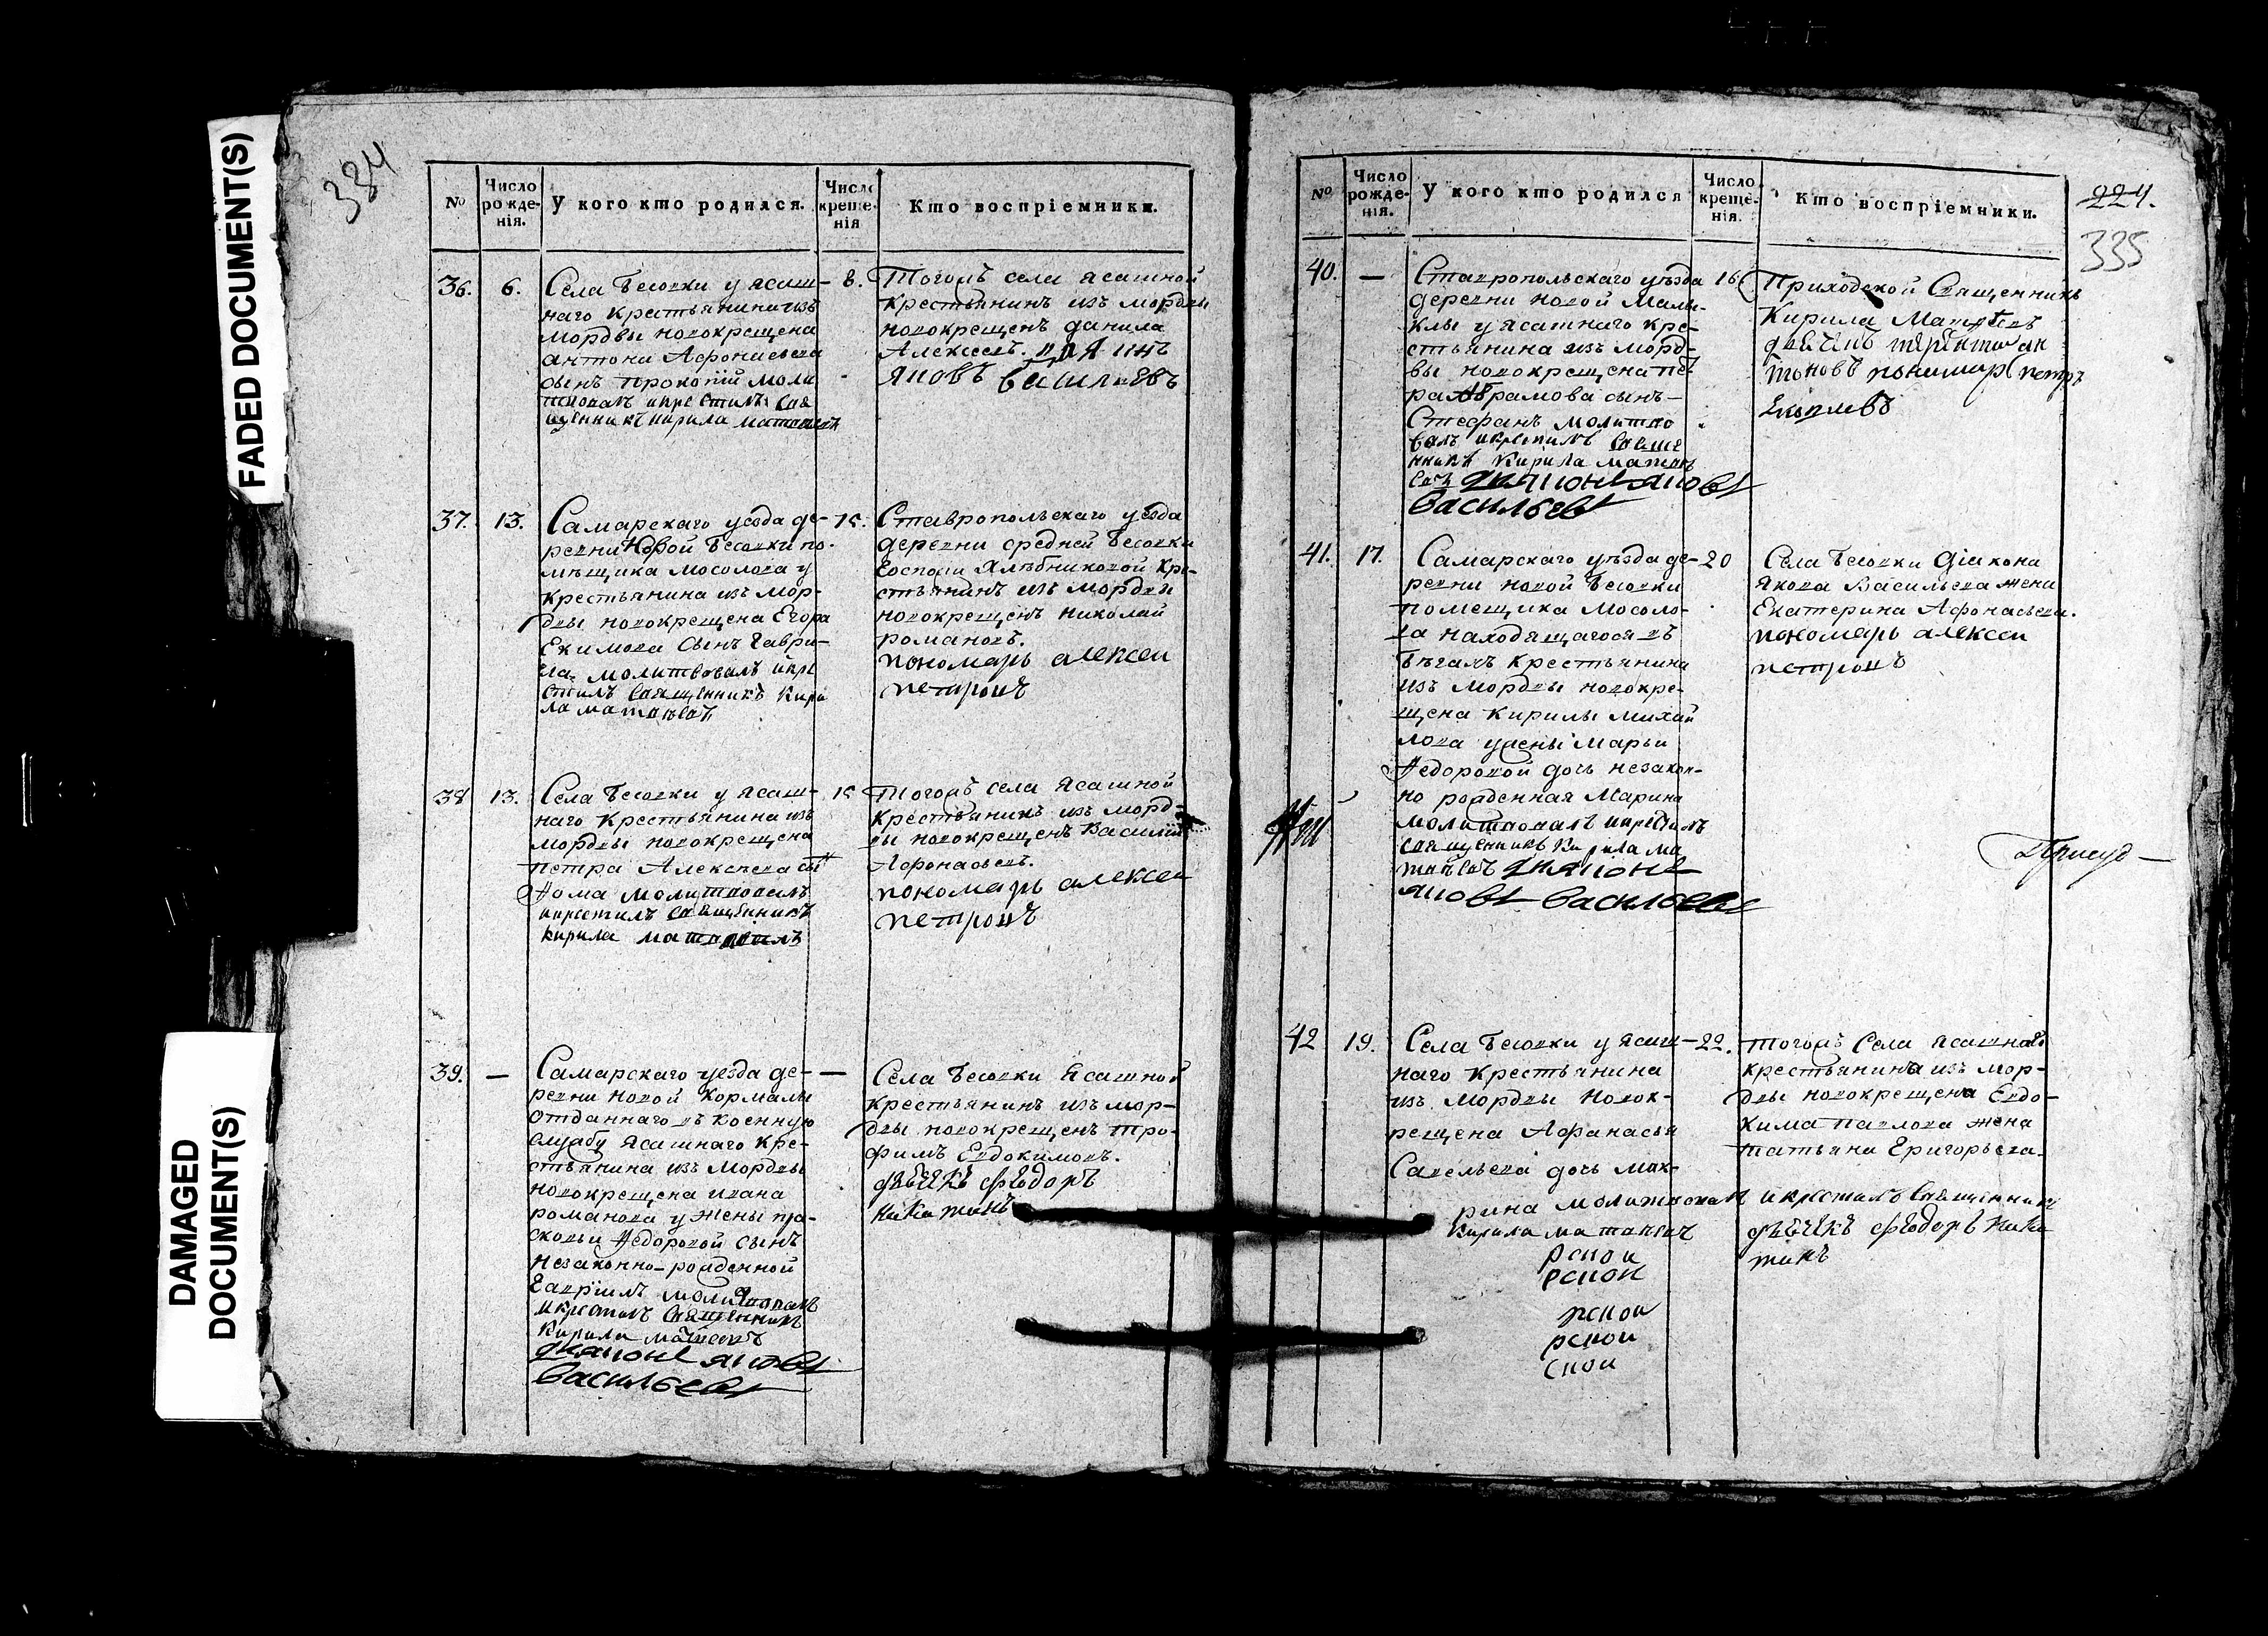 FADED DOCUMENT(S)
DAMAGED
DOCUMENT(S)
334
№
Число рожденія.
У кого кто родился.
Число крещенія
Кто воспріемники.
36. 6.
Села Бесовки у ясаш-
наго крестьянина изъ
мордвы новокрещена
антона Афонасьева
сынъ прокопій моли
твовалъ и крестилъ Свя
щенникъ кирила матвѣевъ
8.
Тогожъ села ясашной
крестьянинъ изъ мордвы
новокрещенъ данила
Алексеевъ.
яковъ васильевъ
37. 13.
Самарскаго уезда де-
ревни Новой Бесовки по-
мѣщика Мосолова у
крестьянина изъ мор-
двы новокрещена Егора
Екимова Сынъ Гаври-
ла молитвовалъ и кре
стилъ священникъ кири
ла матвѣевъ
15.
Ставропольскаго уѣзда
деревни средней Бесовки
Госпожи Хлѣбниковой кре-
стьянинъ изъ мордвы
новокрещенъ николай
романовъ.
пономарь алексеи
петровъ
38 13.
Села Бесовки у ясаш-
наго крестьянина изъ
мордвы новокрещена
петра Алексѣева сынъ
Фома молитвовалъ
и крестилъ священникъ
кирила матвѣевъ
15
Тогожъ села ясашной
крестьянинъ изъ морд-
вы новокрещенъ Василий
Афонасьевъ.
пономарь алексеи
петровъ
39. —
Самарскаго уезда де-
ревни новой кормалы
отданнаго въ военную
службу ясашнаго кре-
стьянина изъ мордвы
новокрещена ивана
романова у жены пра-
сковьи Федоровой сынъ
незаконно-рожденной
Гавріилъ молитвовалъ
и крестилъ священникъ
Кирила матвѣевъ
диаконъ яковъ
васильевъ
—
Села Бесовки ясашной
крестьянинъ изъ мор-
двы новокрещенъ тро-
фимъ Евдокимовъ.
дьячекъ федоръ
никитинъ
224.
335
№
Число рожденія.
У кого кто родился
Число крещенія.
Кто воспріемники.
40. —
Ставропольскаго уѣзда
деревни новой Малы-
клы у ясашнаго кре-
стьянина изъ морд-
вы новокрещена пет
ра Абрамова сынъ
Стефанъ молитво
валъ и крестилъ свяще
нникъ Кирила матвѣ
евъ диаконъ яковъ
васильевъ
16
Приходской Священникъ
Кирила Матвѣевъ
дьячекъ
пономарь петръ
41. 17.
Самарскаго уѣзда де-
ревни новой Бесовки
помещика Мосоло-
ва находящагося въ
бѣгахъ крестьянина
изъ мордвы новокре-
щена кирилы михай
лова у жены Марьи
Федоровой дочь незакон-
но рожденная Марина
молитвовалъ и крестилъ
священникъ кирила ма
твѣевъ диаконъ
яковъ васильевъ
20
Села Бесовки діакона
якова Васильева жена
Екатерина Афонасьева.
пономарь алексеи
петровъ
42 19.
Села Бесовки у ясаш-
наго крестьянина
изъ мордвы новок-
рещена Афанасья
Савельева дочь мак-
рина молитвовалъ и крестилъ священникъ
кирила матвѣевъ
рской
рской
рской
рской
ской
22.
тогожъ Села ясашнаго
крестьянина изъ мор-
двы новокрещена Евдо-
кима павлова жена
татьяна Григорьева.
дьячекъ федоръ ники
тинъ